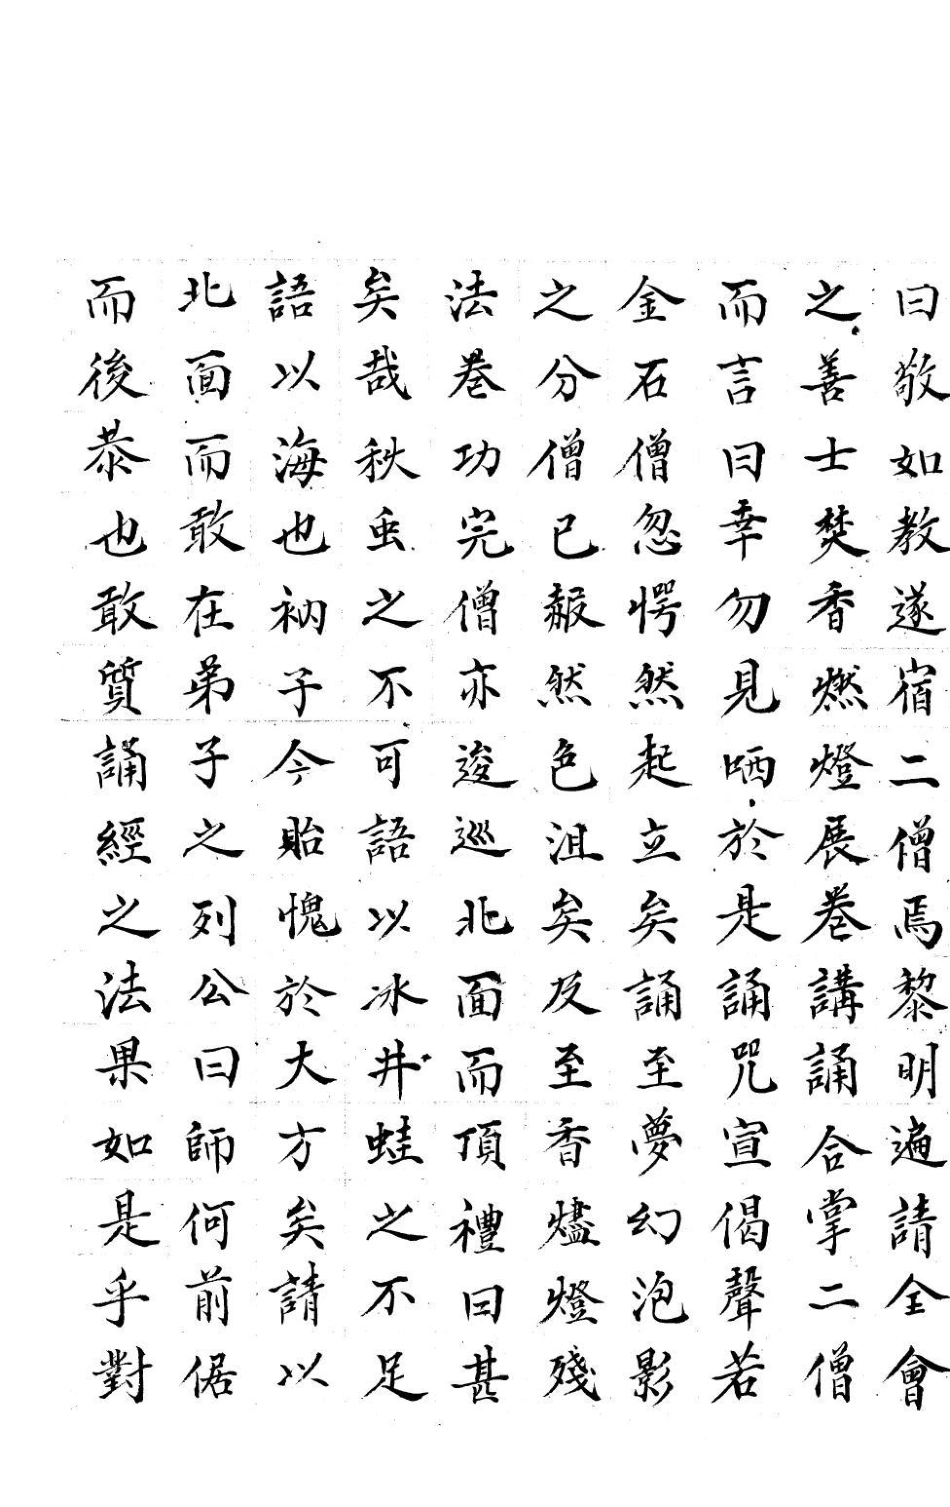 曰敬如教遂宿二僧焉黎明遍請全會
之善士焚香燃燈展卷講誦合掌二僧
而言曰幸勿見哂於是誦咒宣偈聲若
金石僧忽愕然起立矣誦至夢幻泡影
之分僧已赧然色沮矣及至香燼燈殘
法卷功完僧亦逡巡北面而頂禮曰甚
矣哉秋虫之不可語以冰井蛙之不足
語以海也衲子今貽愧於大方矣請以
北面而敢在弟子之列公曰師何前倨
而後恭也敢質誦經之法果如是乎對